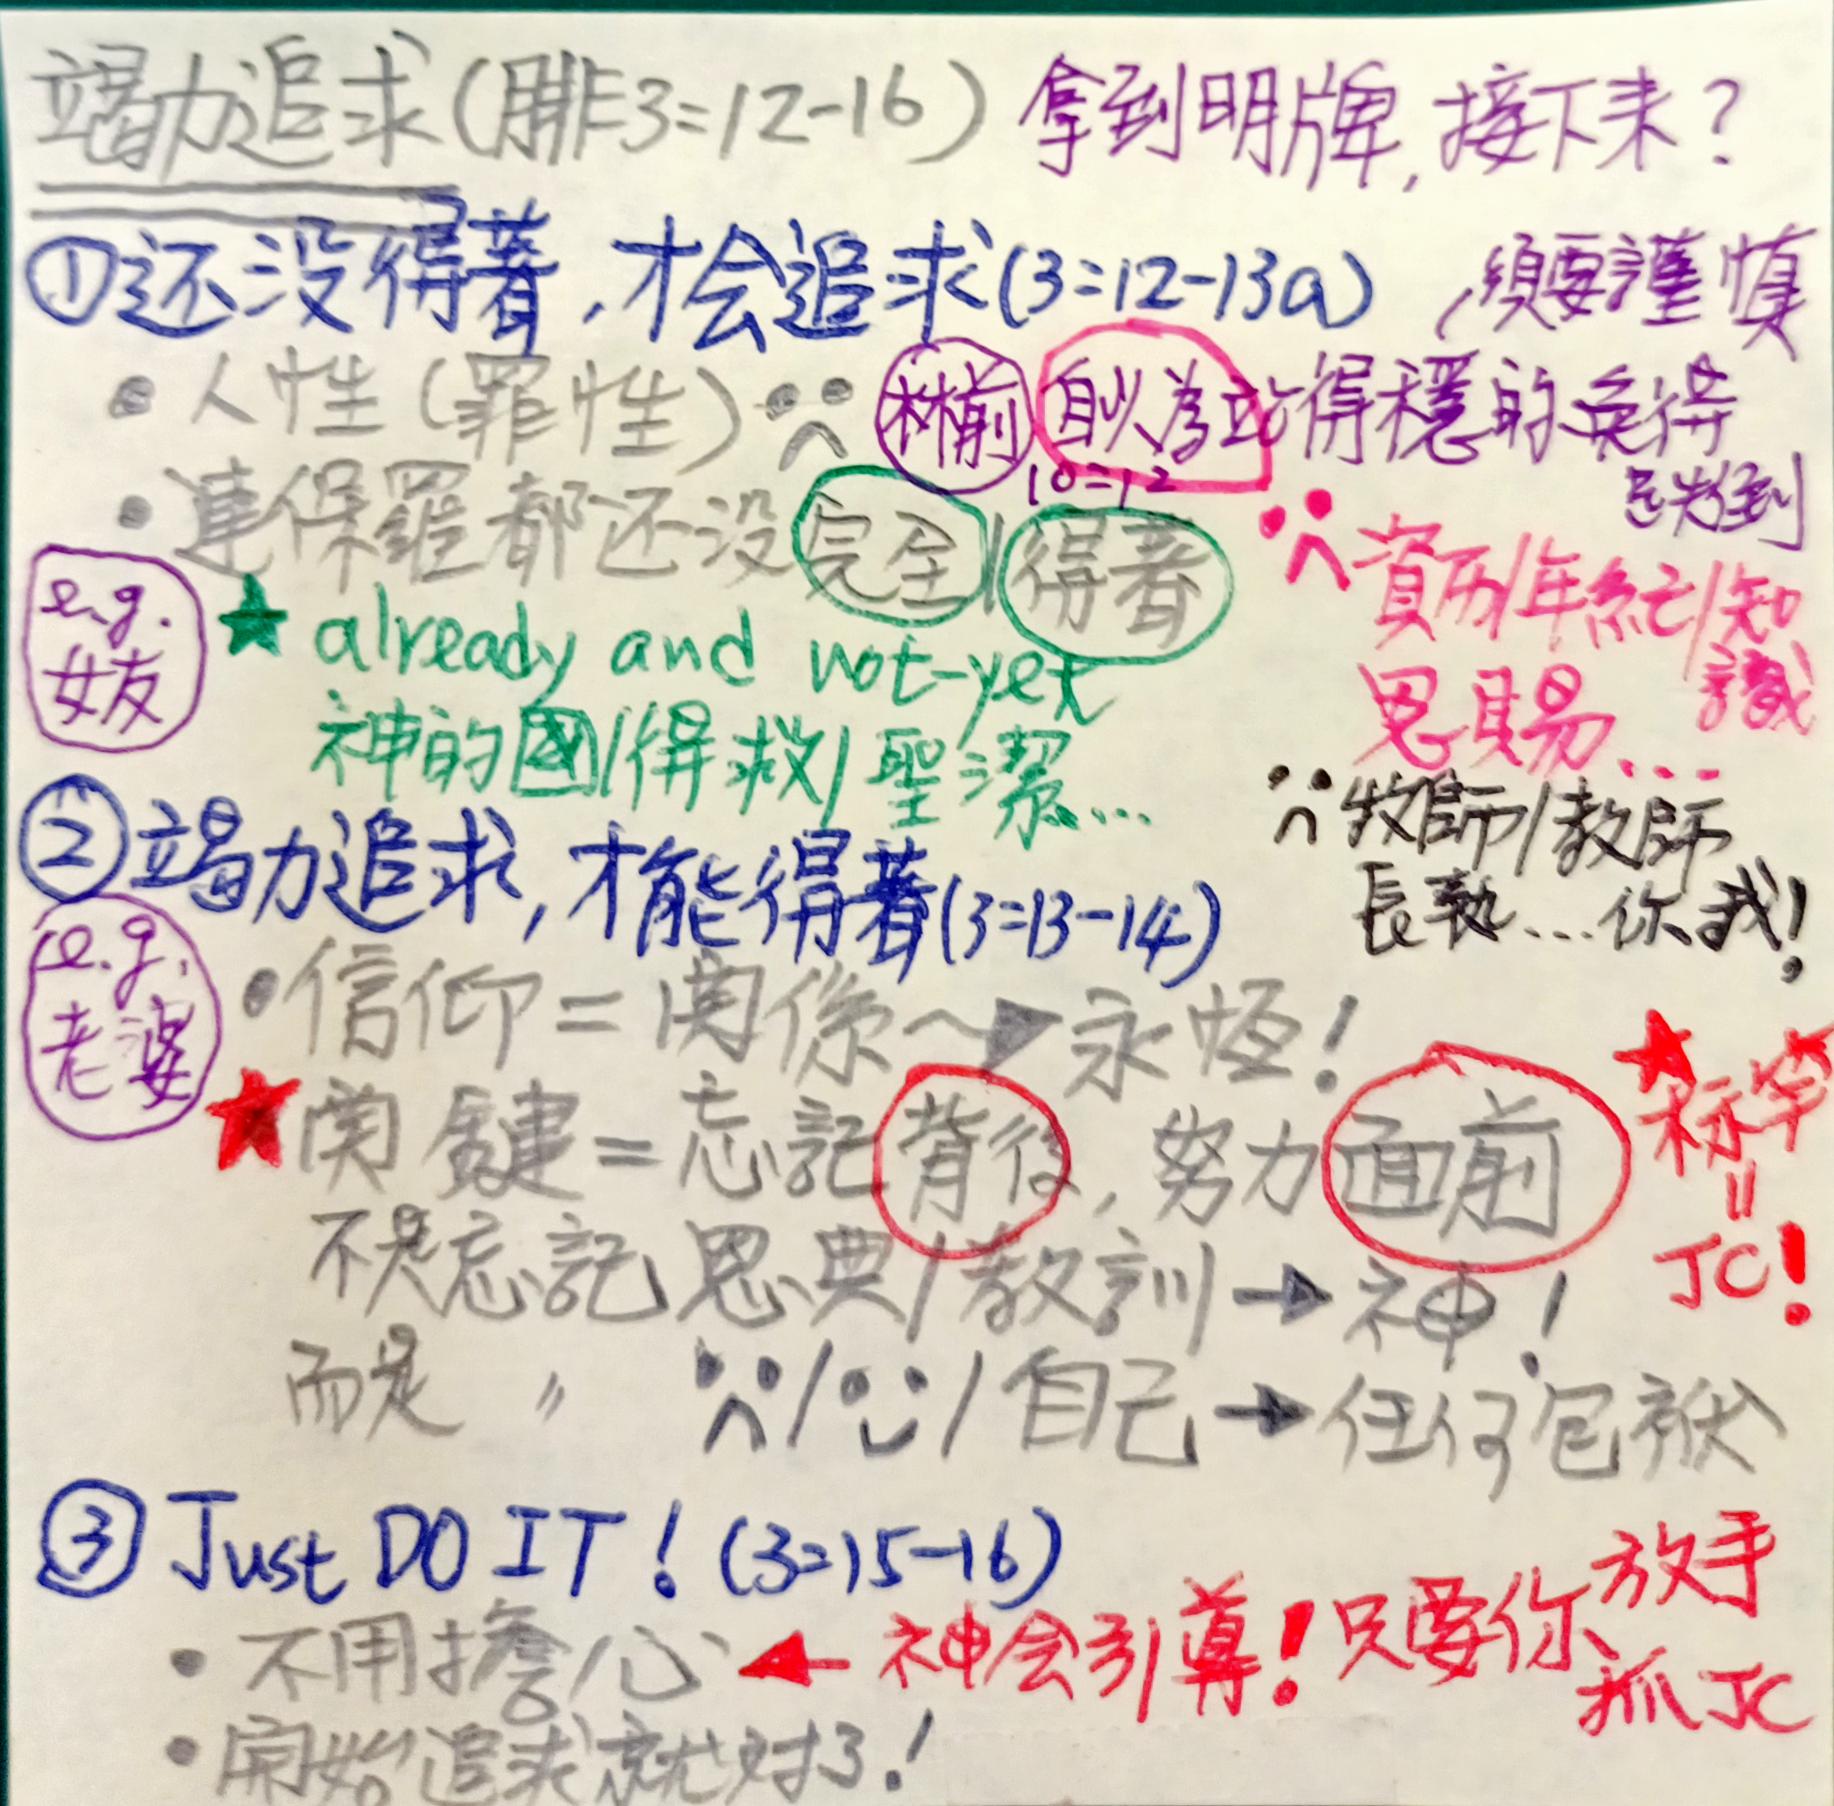 竭力追求(腓3=12-16) 拿到明牌,接下来?
①还没得著,才会追求(3=12-13a)
,須要謹慎
•人性(罪性)
林前 自以為站得穩的
10=12
免得
跌到
•連保羅都还没完全/得著
資历/年紀/知識
恩賜...
e.g.
女友
★already and not-yet
神的國/得救/聖潔...
牧師/教師
長執...你我!
②竭力追求,才能得著(3=13-14)
e.g.
老婆
•信仰=関係→永恆!
★関鍵=忘記背後,努力面前
★标竿
=
JC!
不是忘記恩典/教訓→神!
而是 〃 /自己→任何包袱
③Just DO IT!(3=15-16)
•不用擔心←神会引導!只要你放手
抓JC
•開始追求就对了!